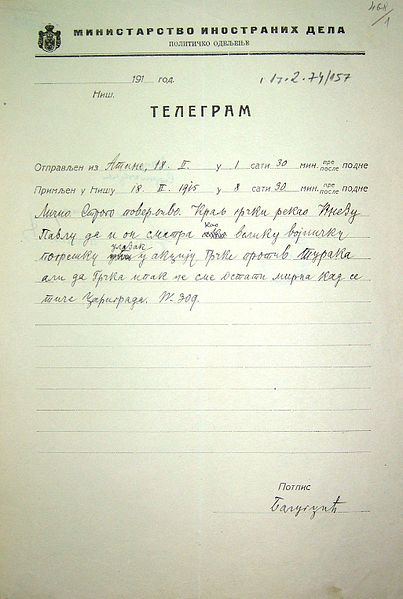 468/1
МИНИСТАРСТВО ИНОСТРАНИХ ДЕЛА
ПОЛИТИЧКО ОДЕЉЕЊЕ
191 год.
Ниш.
ТЕЛЕГРАМ
Отправљен из Атине, 18. II. у 1 сати 30 мин. пре после подне
Примљен у Нишу 18 II. 1915 у 8 сати 30 мин. пре после подне
Лично Строго поверљиво. Краљ грчки рекао Кнезу
Павлу да и он сматра као велику војничку
погрешку улазак у акцију Грчке против Турака
али да Грчка ипак не сме остати мирна кад се
тиче Цариграда. № 309.
Потпис
Балугџић